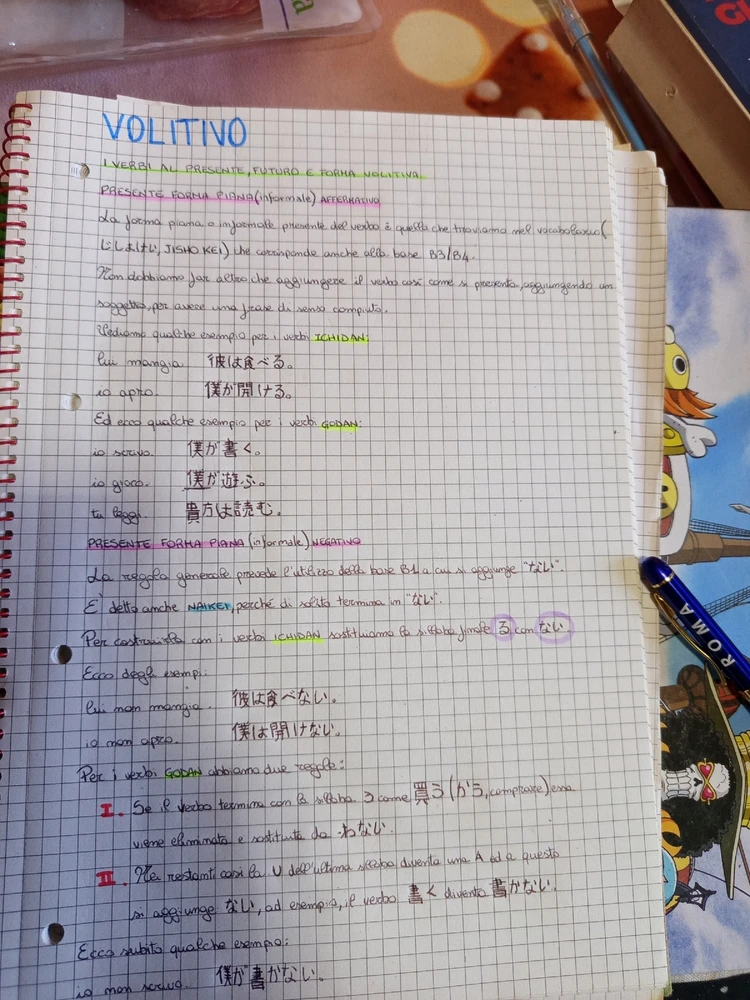 VOLITIVO
I VERBI AL PRESENTE, FUTURO E FORMA VOLITIVA
PRESENTE FORMA PIANA (informale) AFFERMATIVO
La forma piana o informale presente del verbo è quella che troviamo nel vocabolario (
じしょけい, JISHO KEI) che corrisponde anche alla base B3/B4.
Non dobbiamo far altro che aggiungere il verbo così come si presenta, aggiungendo un
soggetto, per avere una frase di senso compiuto.
Vediamo qualche esempio per i verbi ICHIDAN:
lui mangia. 彼は食べる。
io apro. 僕が開ける。
Ed ecco qualche esempio per i verbi GODAN:
io scrivo. 僕が書く。
io gioco. 僕が遊ぶ。
tu leggi. 貴方は読む。
PRESENTE FORMA PIANA (informale) NEGATIVO
La regola generale prevede l'utilizzo della base B1 a cui si aggiunge "ない".
E' detto anche NAIKEI, perché di solito termina in "ない".
Per costruirla con i verbi ICHIDAN sostituiamo la sillaba finale る con ない
Ecco degli esempi:
lui non mangia. 彼は食べない。
io non apro. 僕は開けない。
Per i verbi GODAN abbiamo due regole:
I. Se il verbo termina con la sillaba う come 買う(かう, comprare) essa
viene eliminata e sostituita da わない.
II. Nei restanti casi la U dell'ultima sillaba diventa una A ed a questo
si aggiunge ない, ad esempio, il verbo 書く diventa 書かない.
Ecco subito qualche esempio:
io non scrivo. 僕が書かない。
ROMA